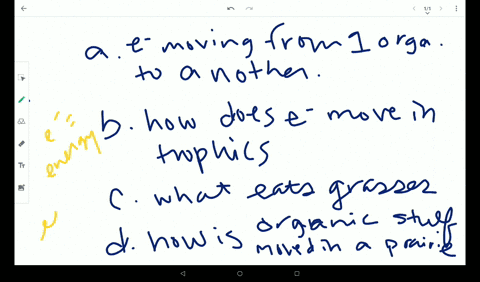 1/1
a. e- moving from 1 orga.
to another.
b. how does e- move in
trophics
e-
energy
c. what eats grasses
d. how is organic stuff
moved in a prairie
e
Tr